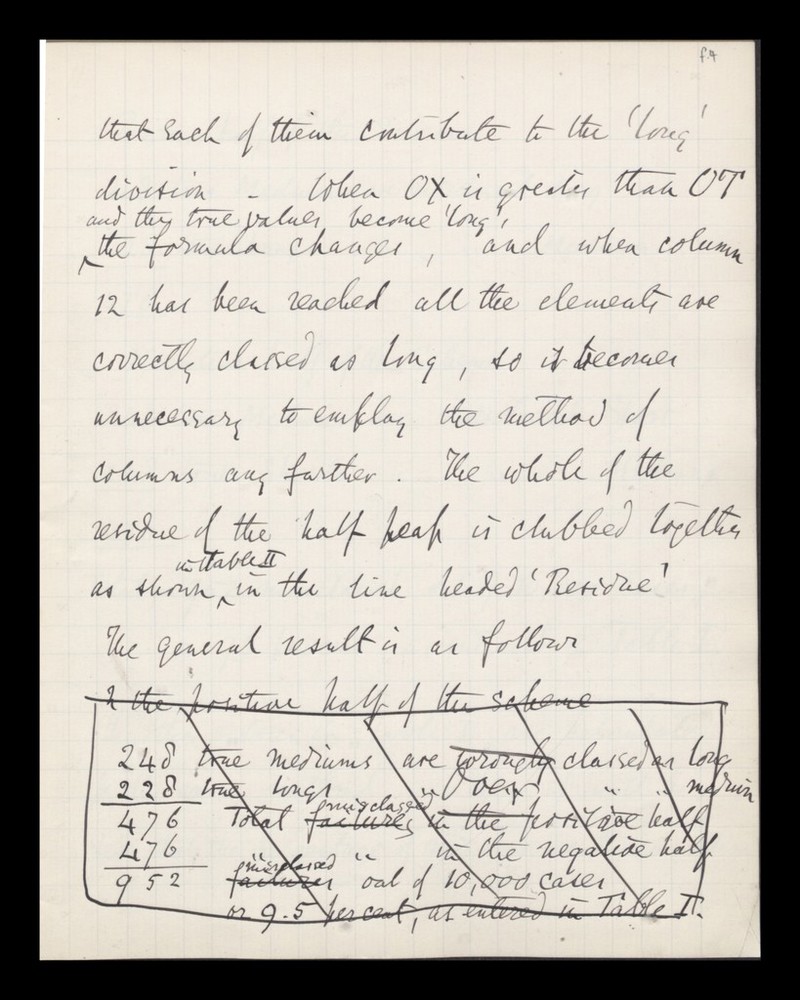 f.4
that each of them contribute to the 'long'
division - When OX is greater than OT
and the true values become 'long',
the formula changes, and when column
12 has been reached all the elements are
correctly classed as long, so it becomes
unnecessary to employ the method of
columns any further. The whole of the
residue of the half heap is clubbed together
in table II
as shown in the line headed 'Residue'
The general result is as follows
the positive half of the scheme
248 true mediums are wrongly classed as long
228 true longs " " " medium
misclassed
476 Total failures in the positive half
476 " " in the negative half
misclassed
952 failures out of 10,000 cases
or 9.5 per cent, as entered in Table II.